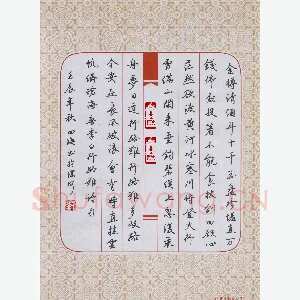 金樽清酒斗十千玉盘珍羞值万
钱停杯投箸不能食拔剑四顾心
茫然欲渡黄河冰塞川将登太行
雪满山闲来垂钓碧溪上忽复乘
舟梦日边行路难行路难多歧路
今安在长风破浪会有时直挂云
帆济沧海李白行路难
壬辰年秋